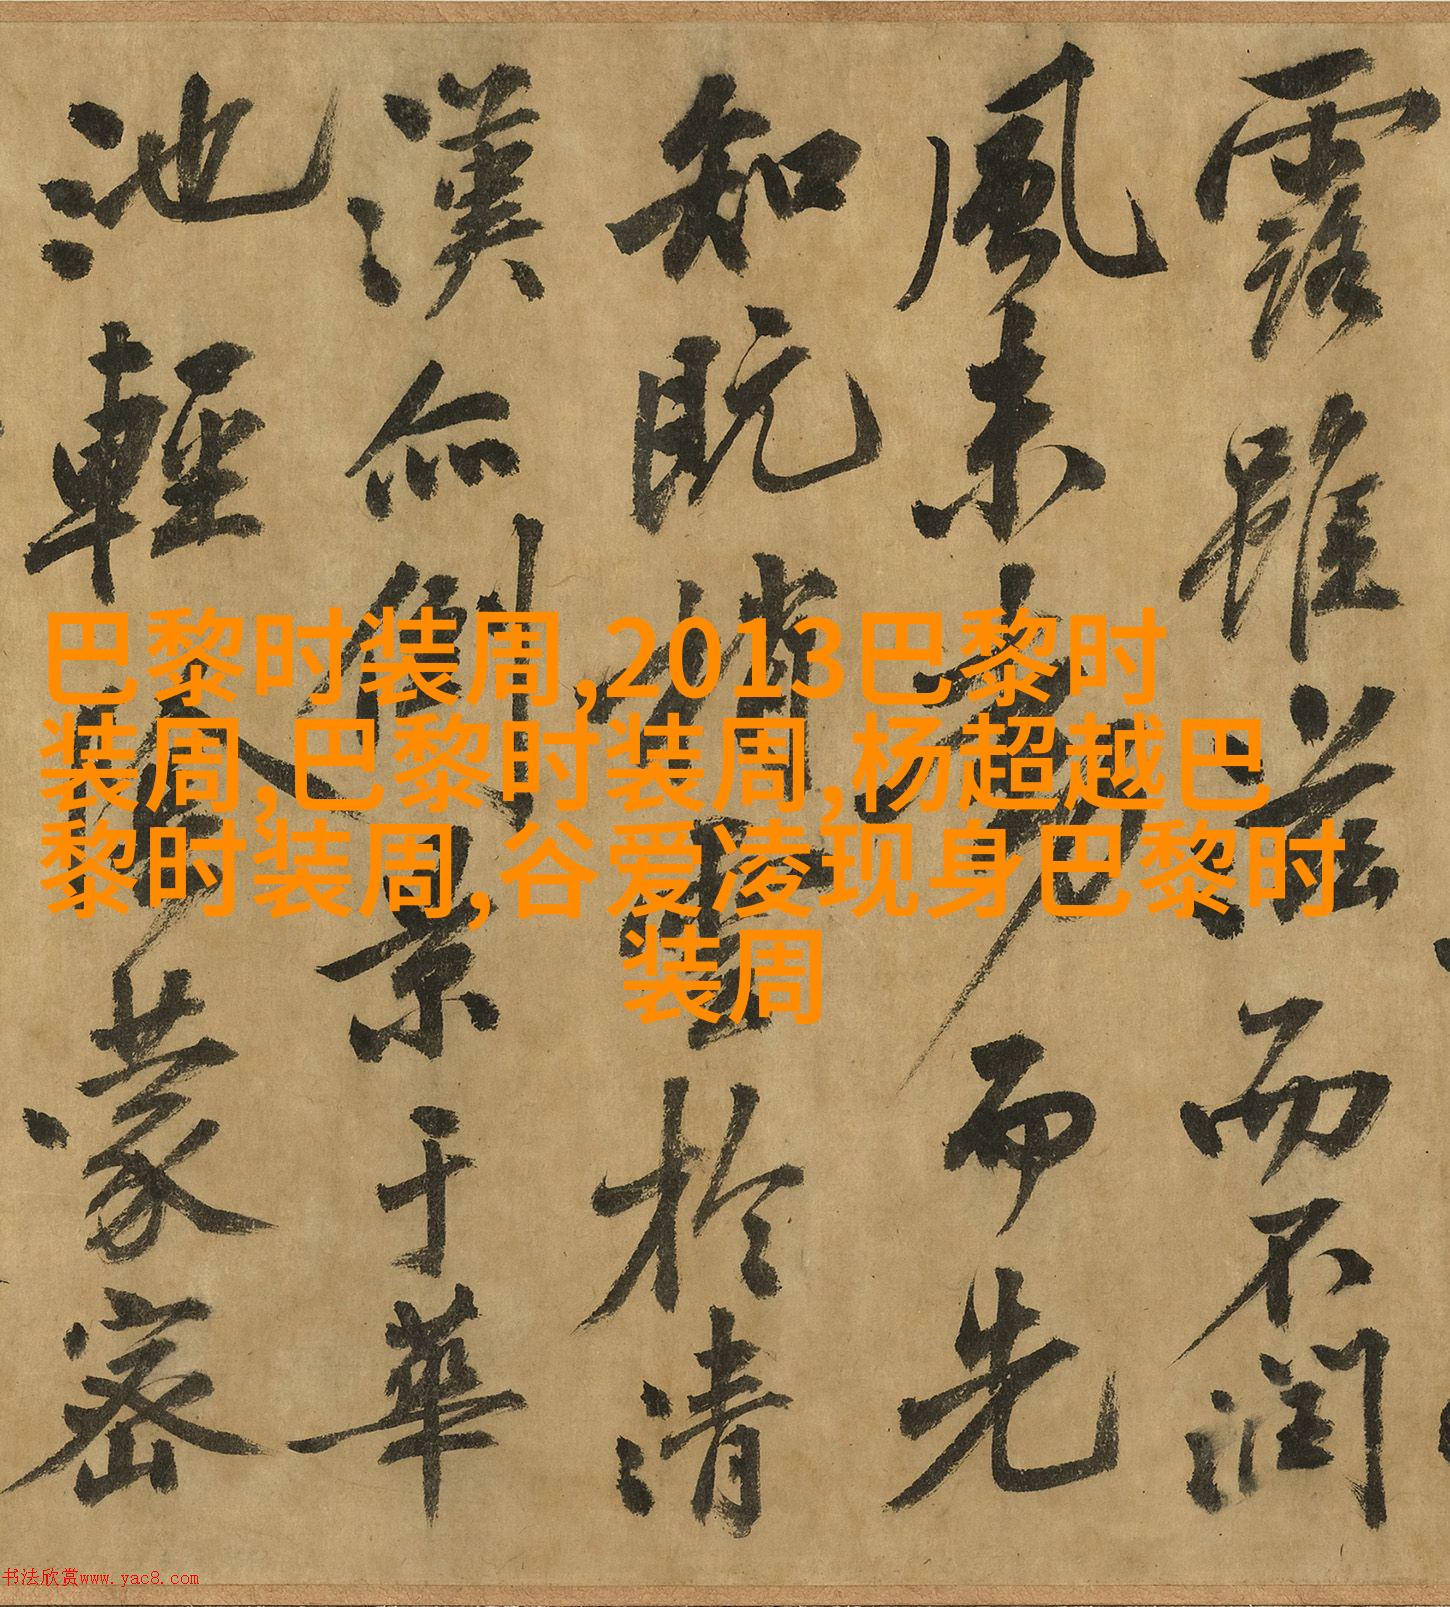 露雖而不潤
風未動而先
知既梢雲於清
漢亦倒景于華
池輕蒙密
巴黎时装周,2013巴黎时
装周,巴黎时装周,杨超越巴
黎时装周,谷爱凌现身巴黎时
装周
书法欣赏www.yac8.com